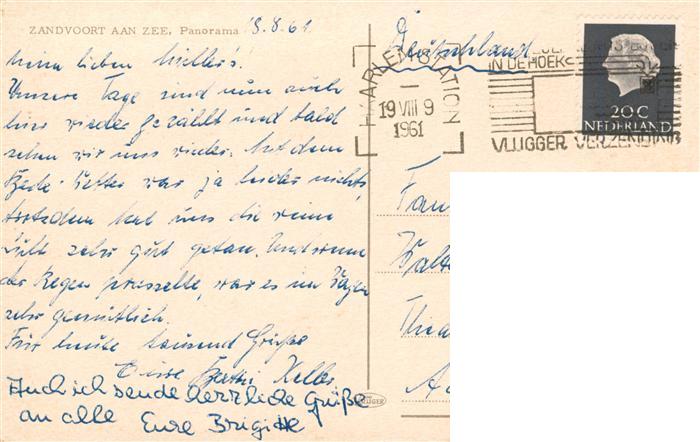 ZANDVOORT AAN ZEE, Panorama 18.8.61
Meine lieben Müller's!
Unsere Tage sind nun auch
hier wieder gezählt und bald
sehen wir uns wieder. Mit dem
Bade-Wetter war ja leider nichts,
trotzdem hat uns die reine
Luft sehr gut getan. Und wenn
der Regen prasselte, war es im
sehr gemütlich.
Für heute tausend Grüße
Eure Keller
Auch ich sende herzliche Grüße
an alle Eure Brigitte
Deutschland
HAARLEM STATION
19 VIII 9
1961
IN DE HOEK
VLUGGER VERZENDING
20 C
NEDERLAND
Fam